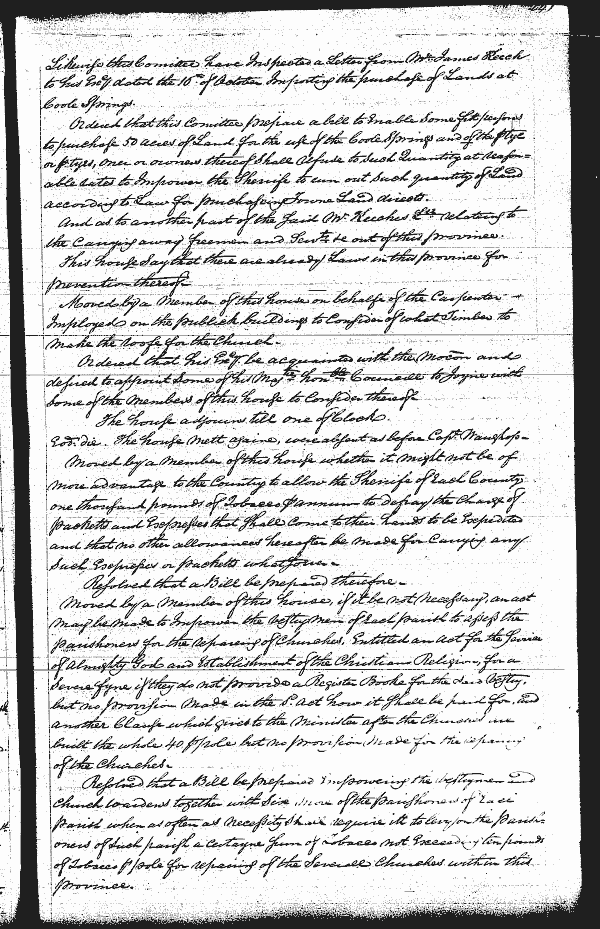 Likewise this Comittee have Inspected a Letter from Mr. James Keech
to his Exy dated the 16th of October Importing the purchase of Lands at
Coole Springs.
Ordered that this Comittee prepare a bill to Enable Some fitt persons
to purchase 50 acres of Land for the use of the Coole Springs and if the ptye
or ptyes, oner or owners thereof Shall Refuse to Such Quantity at reason=
able rates to Impower the Sherriffe to run out Such quantity of Land
according to Law for purchaseing Towne Land directs.
And as to another part of the Said Mr. Keeches Lre relateing to
the Carrying away freemen and Servts &c out of this province.
This house Say that there are already Laws in this province for
prevention thereof
Moved by a Member of this house on behalfe of the Carpenter
Imployed on the publick buildings to Consider of what Timber to
make the roofe for the Church.
Ordered that his Exy be acquainted with the mocon and
desired to appoint Some of his Majtys honble Councill to Joyne with
Some of the Members of this house to Consider thereof
The house adjourns till one of Clock
Eod. die. The house mett againe, were absent as before Capt.
Moved by a Member of this house whether it might not be of
more advantage to the Country to allow the Sherriffe of Each County
one thousand pounds of Tobacco p annum to defray the Charge of
packetts and Expresses that Shall Come to their hands to be Expedited
and that no other allowances hereafter be made for Carrying any
Such Expresses or packetts whatsoever
Resolved that a Bill be prepared therefore
Moved by a Member of this house, if it be not necessary, an act
may be made to Impower the vestry men of Each parish to assess the
parishoners for the repareing of Churches, Entitled an Act for the Service
of Almighty God and Establishment of the Christian Religion, for a
Severe fyne if they do not provide a Register Booke for the Said Vestry,
but no provision made in the Sd. Act how it Shall be paid for, and
another Clause which gives to the Minister after the Churches are
built the whole 40 p pole but no provision made for the repairing
of the Churches.
Resolved that a Bill be prepared Impowering the vestrymen and
Church wardens together with Six more of the parishoners of Each
parish when as often as necessity Shall require itt to levy on the parish=
oners of Such parish a certayne Sum of Tobacco not Exceeding ten pounds
of Tobacco p pole for repairing of the Severall Churches within this
Province.